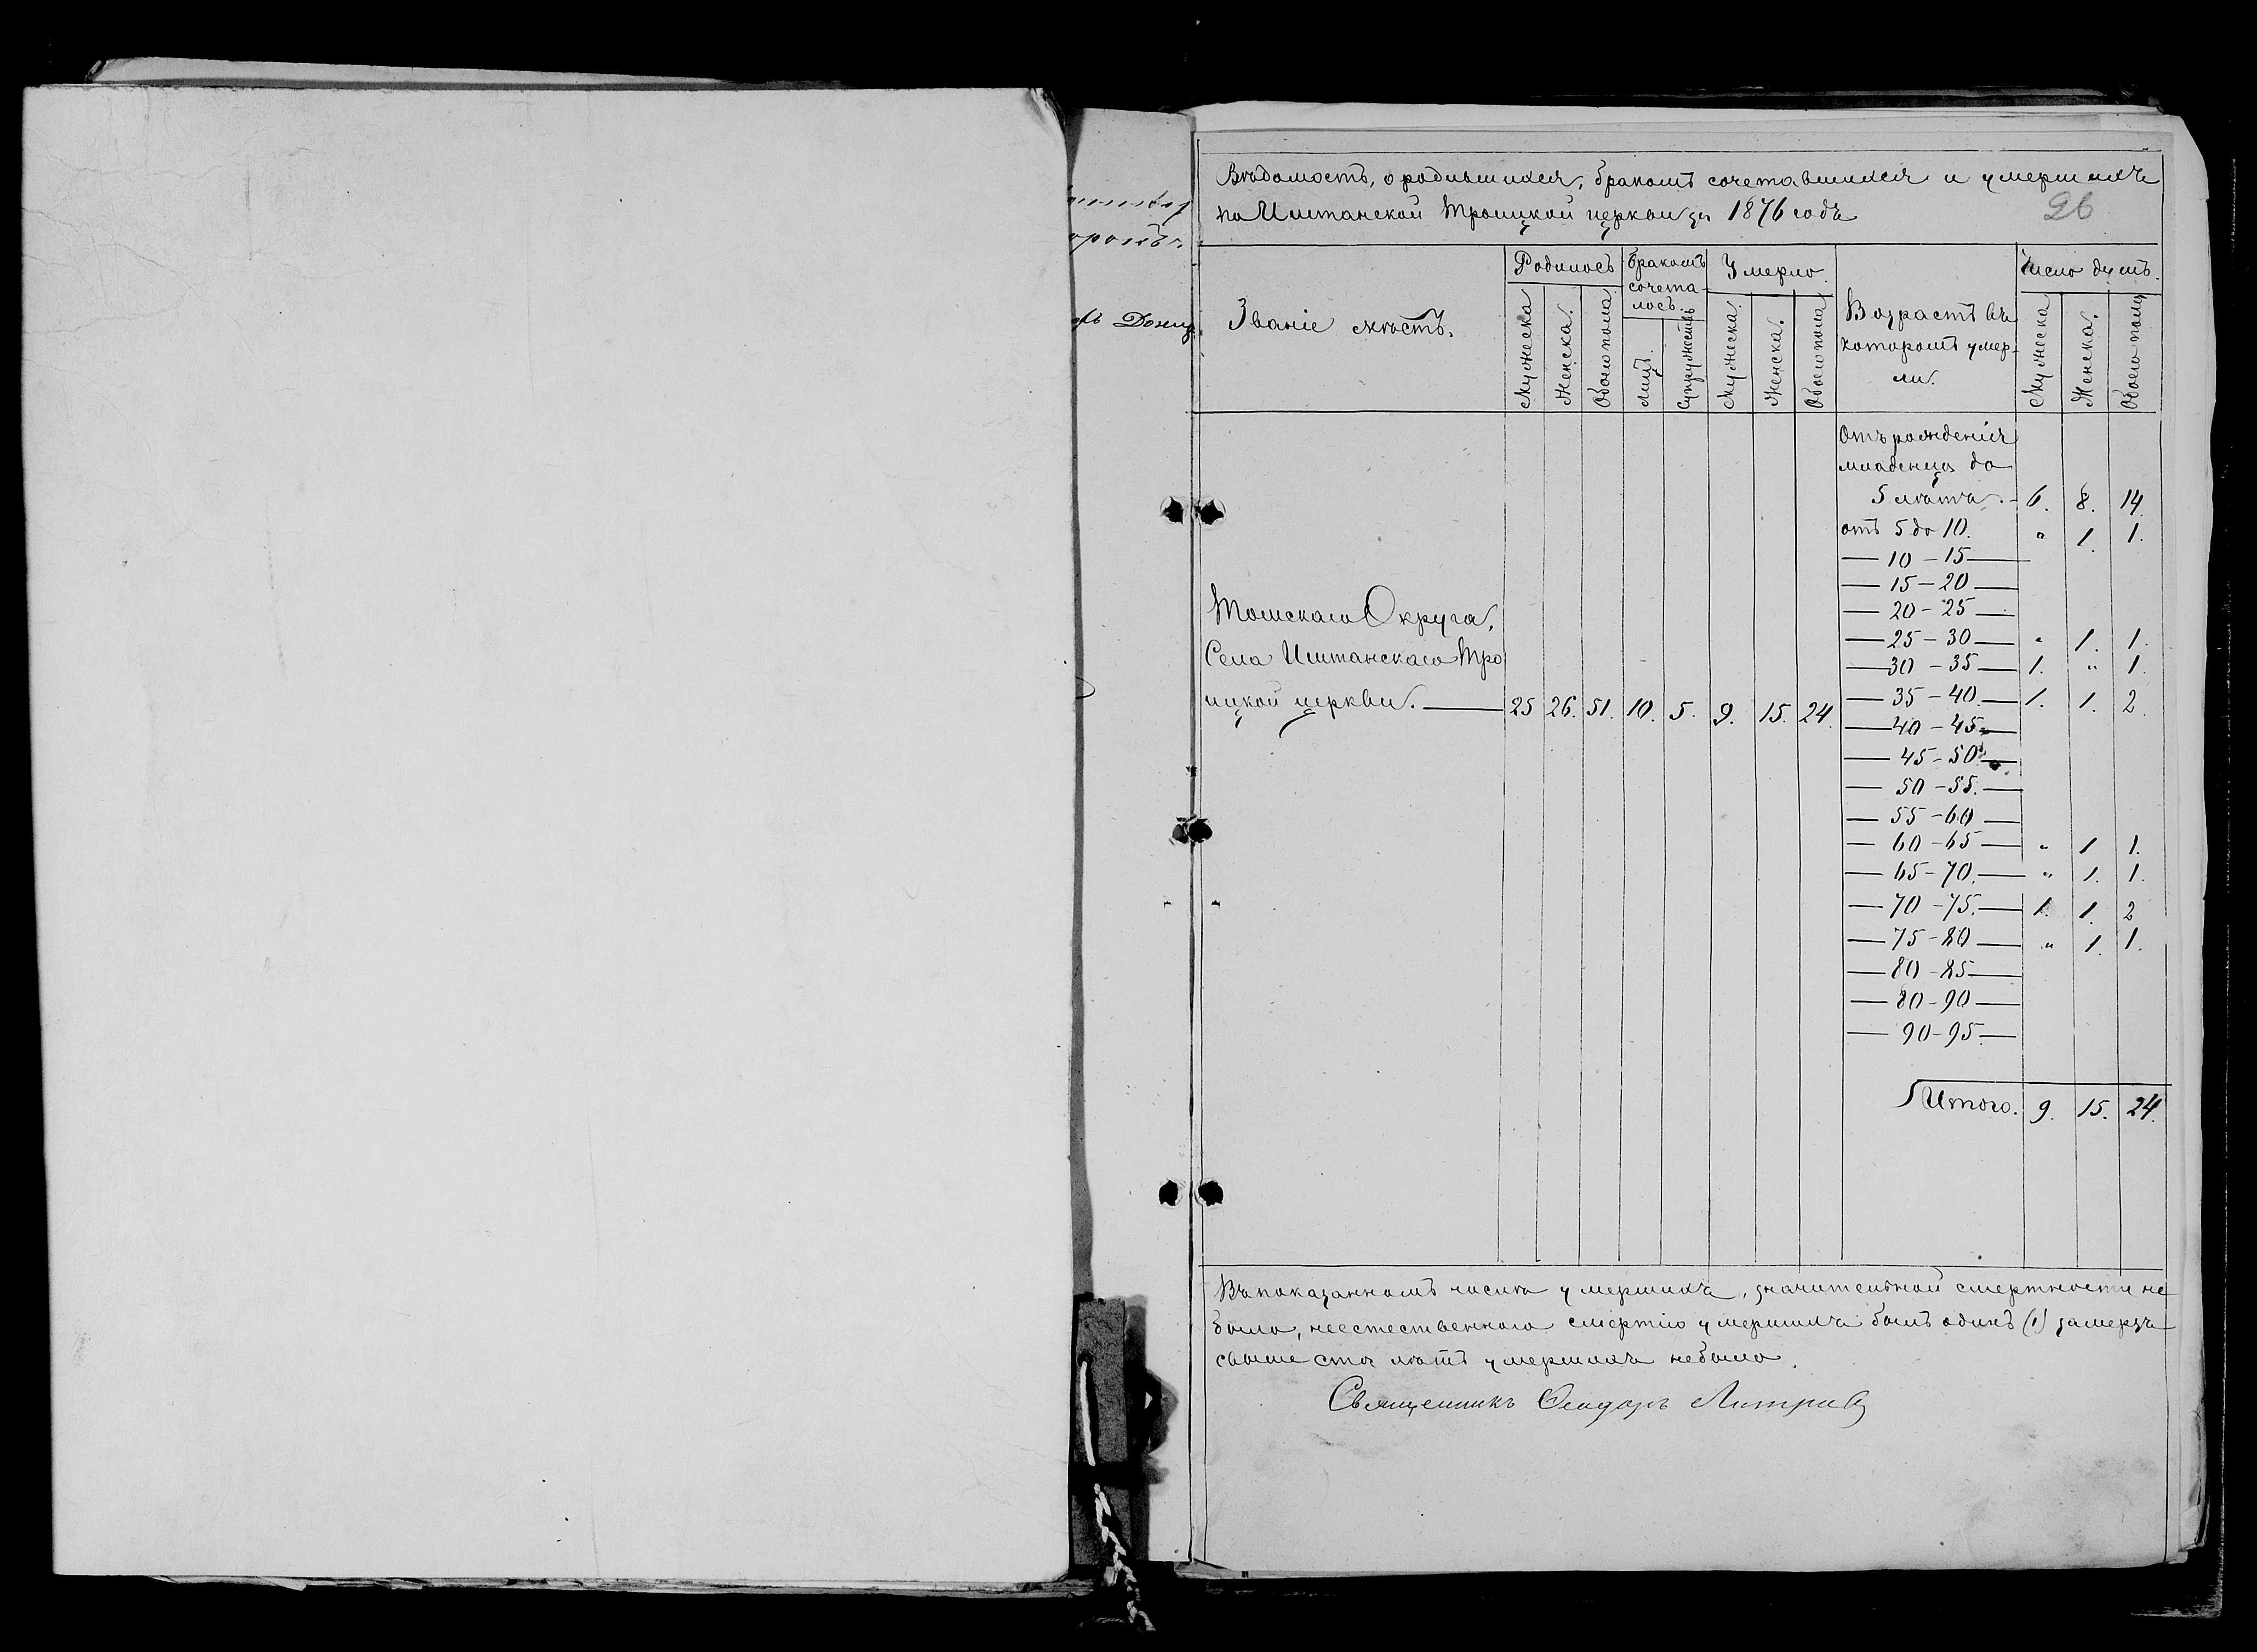 Вѣдомость, о родившихся, бракомъ сочетавшихся и умершихъ
по Иштанской Троицкой церкви за 1876 годъ
26
Званіе мѣстъ.
Родилось
Мужеска
Женска.
Обоего пола
Бракомъ
сочета-
лось.
Лицъ.
Супружествъ
Умерло.
Мужеска.
Женска.
Обоего пола
Возрастъ въ
которомъ умер-
ли.
Число душъ.
Мужеска
Женска.
Обоего пола
Отъ рожденія
младенца до
5 лѣтъ. - 6. 8. 14.
отъ 5 до 10. " 1. 1.
— 10 - 15 —
— 15 - 20 —
— 20 - 25 —
— 25 - 30 — " 1. 1.
— 30 - 35 — 1. " 1.
— 35 - 40. — 1. 1. 2.
— 40 - 45 —
— 45 - 50. —
— 50 - 55. —
— 55 - 60 —
— 60 - 65 — " 1 1.
— 65 - 70. — " 1. 1.
— 70 - 75. — 1. 1. 2
— 75 - 80 — " 1. 1.
— 80 - 85 —
— 80 - 90 —
— 90 - 95 —
Итого. 9. 15. 24.
Томскаго Округа,
Села Иштанскаго Тро
ицкой церкви. — 25 26. 51. 10. 5. 9. 15. 24.
Въ показанномъ числѣ умершихъ, значительной смертности не
было, неестественного смертію умершихъ былъ одинъ (1) замерзъ
свыше ста лѣтъ умершихъ небыло.
Священникъ Ѳеодоръ